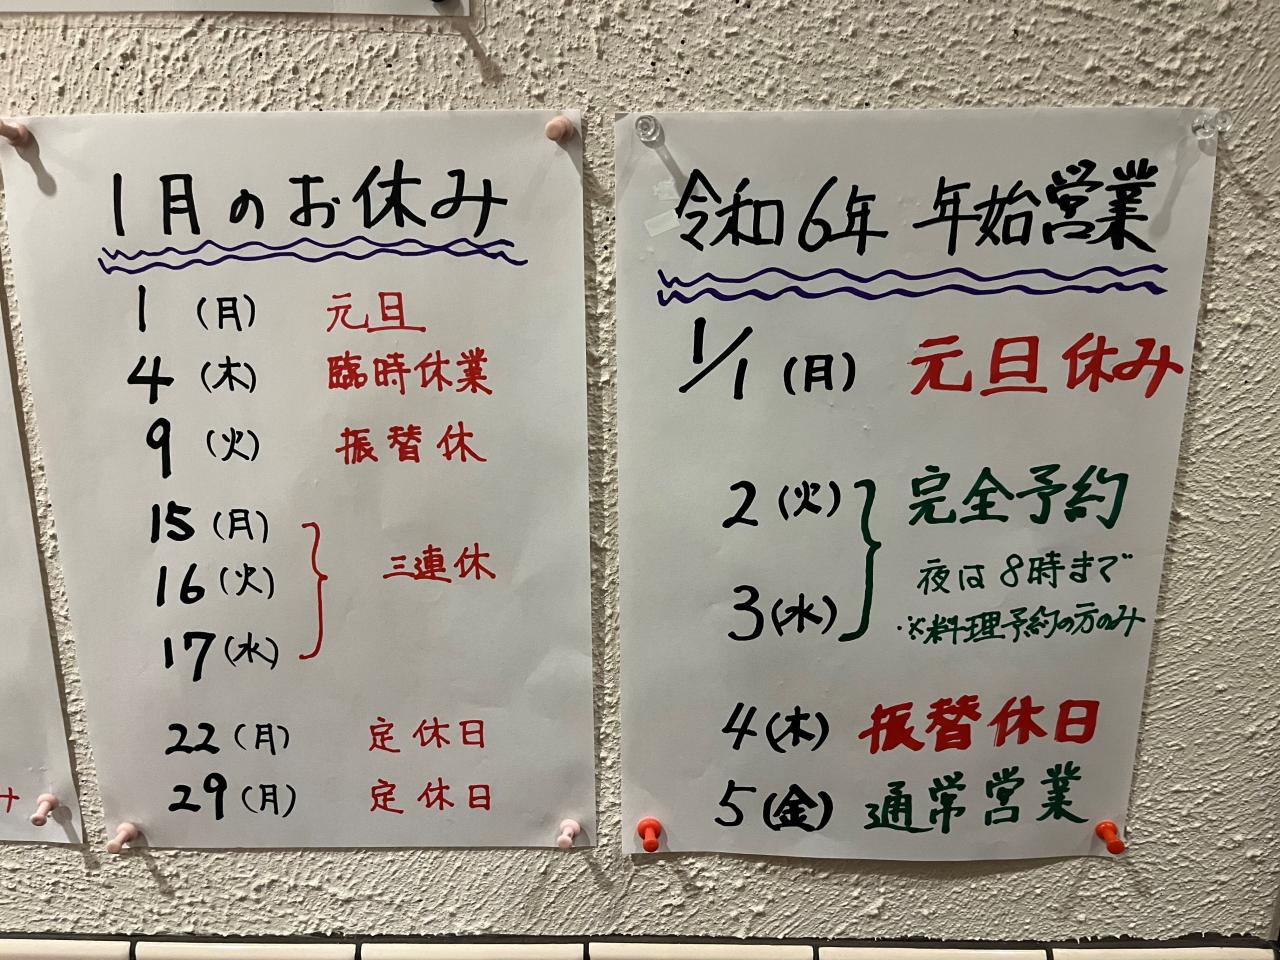 1月のお休み
1 (月) 元旦
4 (木) 臨時休業
9 (火) 振替休
15 (月)
16 (火) 三連休
17 (水)
22 (月) 定休日
29 (月) 定休日
令和6年 年始営業
1/1 (月) 元旦休み
2 (火) 完全予約
夜は8時まで
3 (水) ※料理予約の方のみ
4 (木) 振替休日
5 (金) 通常営業